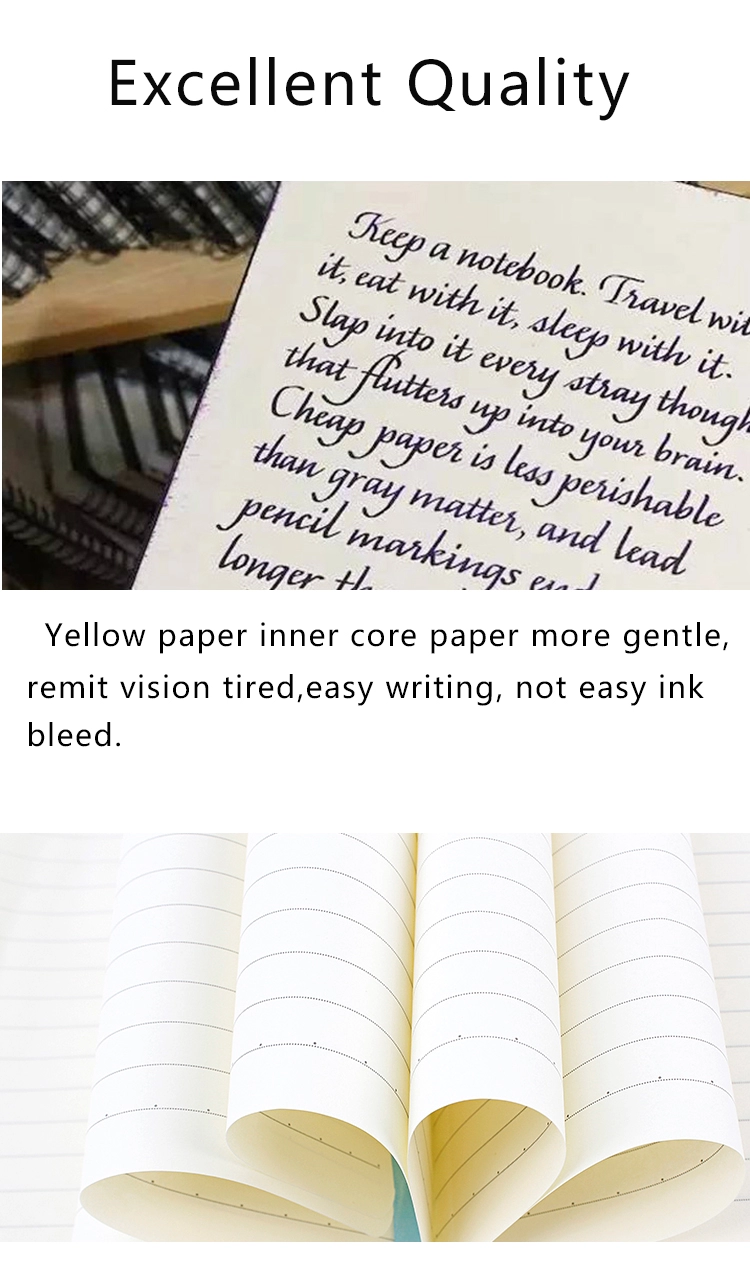 Excellent Quality
Keep a notebook. Travel wit
it, eat with it, sleep with it.
Slap into it every stray though
that flutters up into your brain.
Cheap paper is less perishable
than gray matter, and lead
pencil markings
longer
Yellow paper inner core paper more gentle,
remit vision tired,easy writing, not easy ink
bleed.